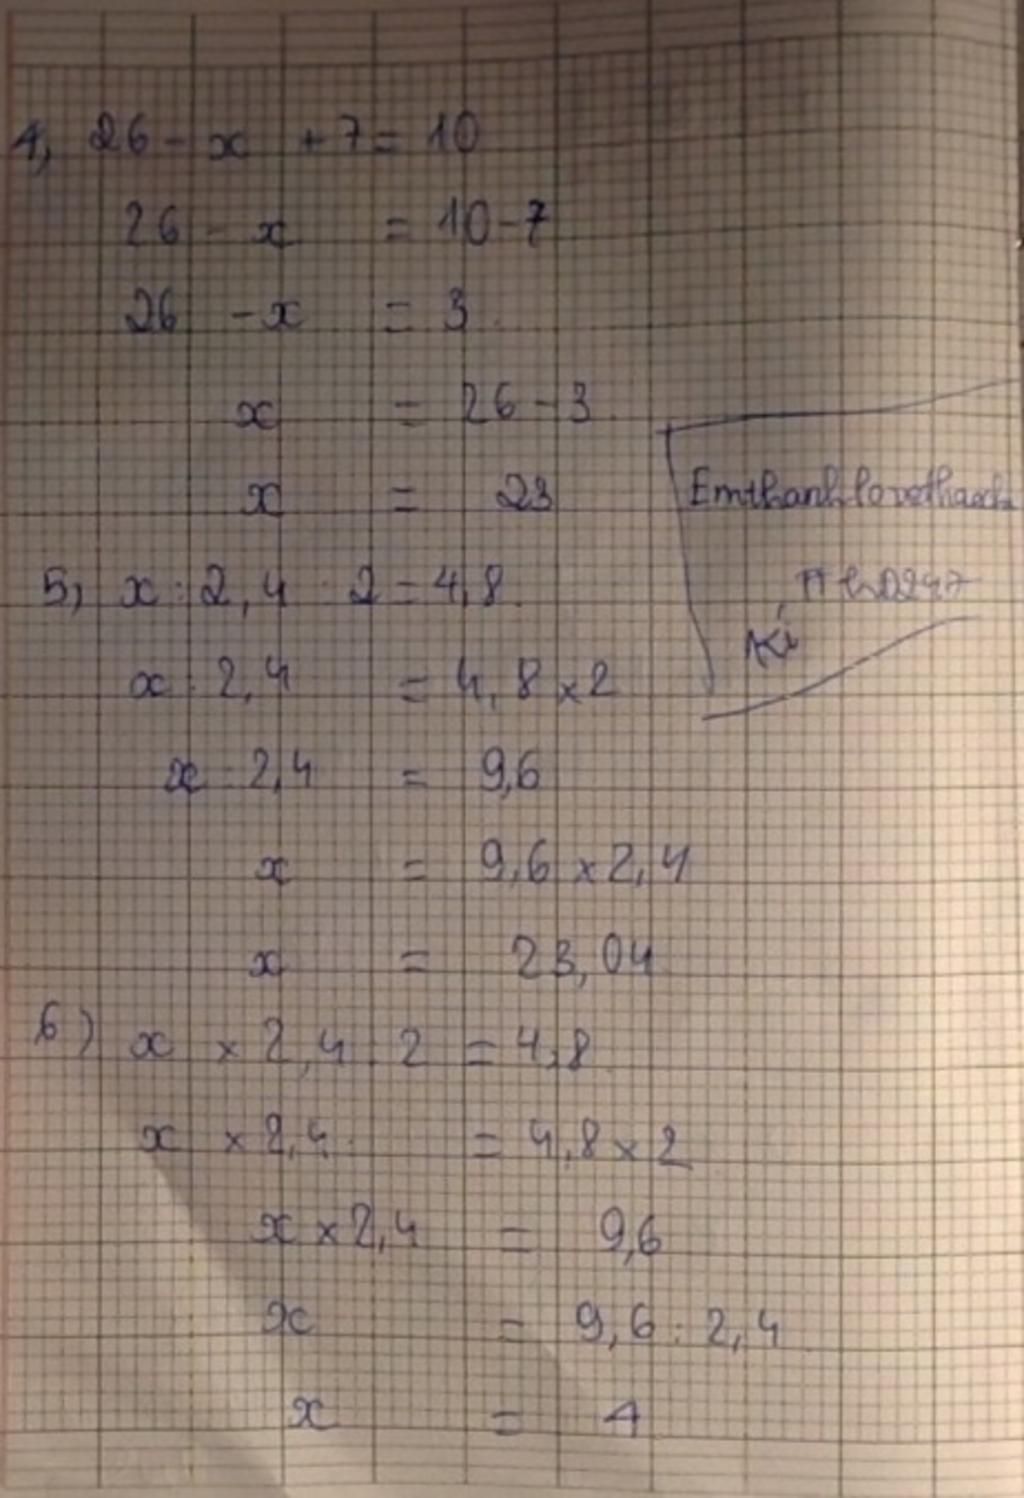 4, 26 - x + 7 = 10
26 - x = 10 - 7
26 - x = 3
x = 26 - 3
x = 23
5, x : 2,4 : 2 = 4,8
x : 2,4 = 4,8 x 2
x : 2,4 = 9,6
x = 9,6 x 2,4
x = 23,04
6) x x 2,4 : 2 = 4,8
x x 2,4 = 4,8 x 2
x x 2,4 = 9,6
x = 9,6 : 2,4
x = 4
Kí